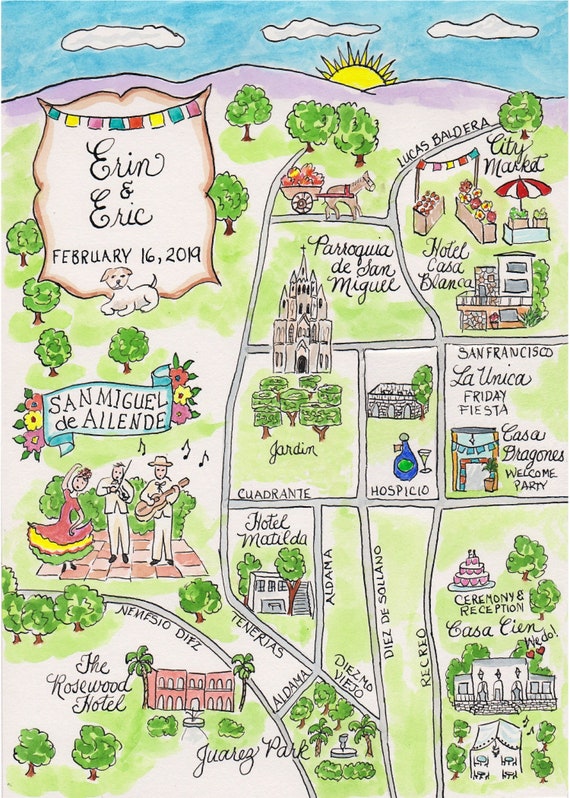 Erin
&
Eric
FEBRUARY 16, 2019
LUCAS BALDERA
City
Market
Parroquia
de San
Miguel
Hotel
Casa
Blanca
SAN MIGUEL
de ALLENDE
SANFRANCISCO
La Unica
FRIDAY
FIESTA
Casa
Dragones
WELCOME
PARTY
Jardin
CUADRANTE
HOSPICIO
Hotel
Matilda
ALDAMA
DIEZ DE SOLLANO
RECREO
CEREMONY &
RECEPTION
Casa Cien
We do!
NEMESIO DIEZ
TENERIAS
The
Rosewood
Hotel
ALDAMA
DIEZMO
VIEJO
Juarez Park